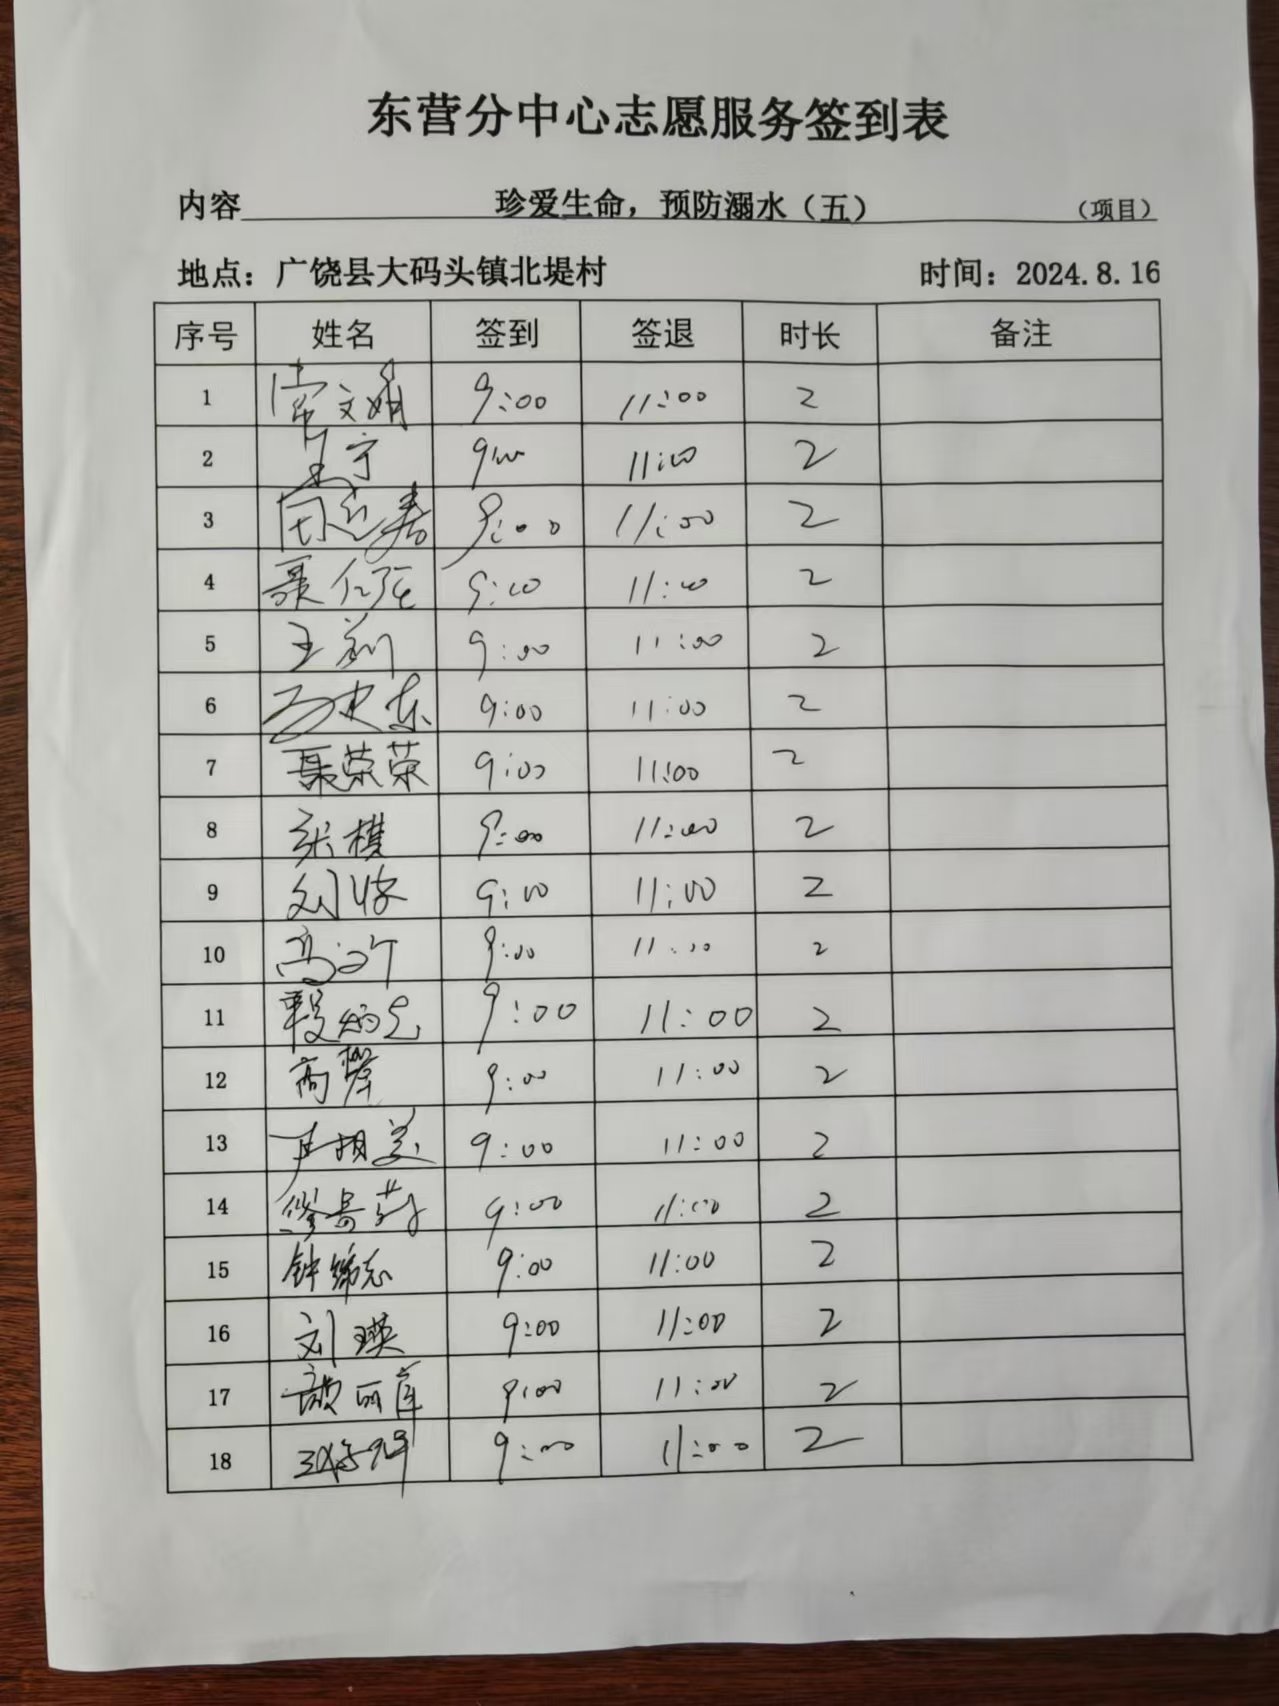 东营分中心志愿服务签到表
内容 珍爱生命，预防溺水（五） （项目）
地点：广饶县大码头镇北堤村 时间：2024.8.16
序号 姓名 签到 签退 时长 备注
1 常文娟 9:00 11:00 2
2 宁 9:00 11:00 2
3 9:00 11:00 2
4 聂 9:00 11:00 2
5 王莉 9:00 11:00 2
6 9:00 11:00 2
7 聂荣荣 9:00 11:00 2
8 张横 9:00 11:00 2
9 刘 9:00 11:00 2
10 高 9:00 11:00 2
11 段炳 9:00 11:00 2
12 高馨 9:00 11:00 2
13 9:00 11:00 2
14 9:00 11:00 2
15 钟 志 9:00 11:00 2
16 刘瑛 9:00 11:00 2
17 丽莲 9:00 11:00 2
18 9:00 11:00 2